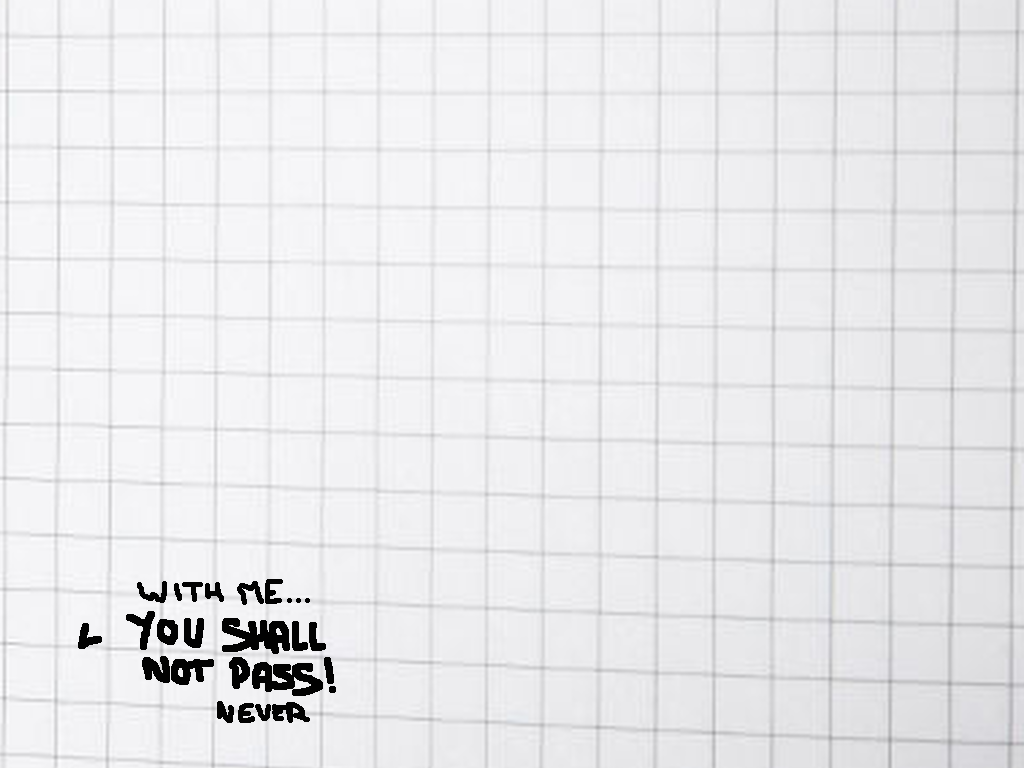 WITH ME...
L YOU SHALL
NOT PASS!
NEVER